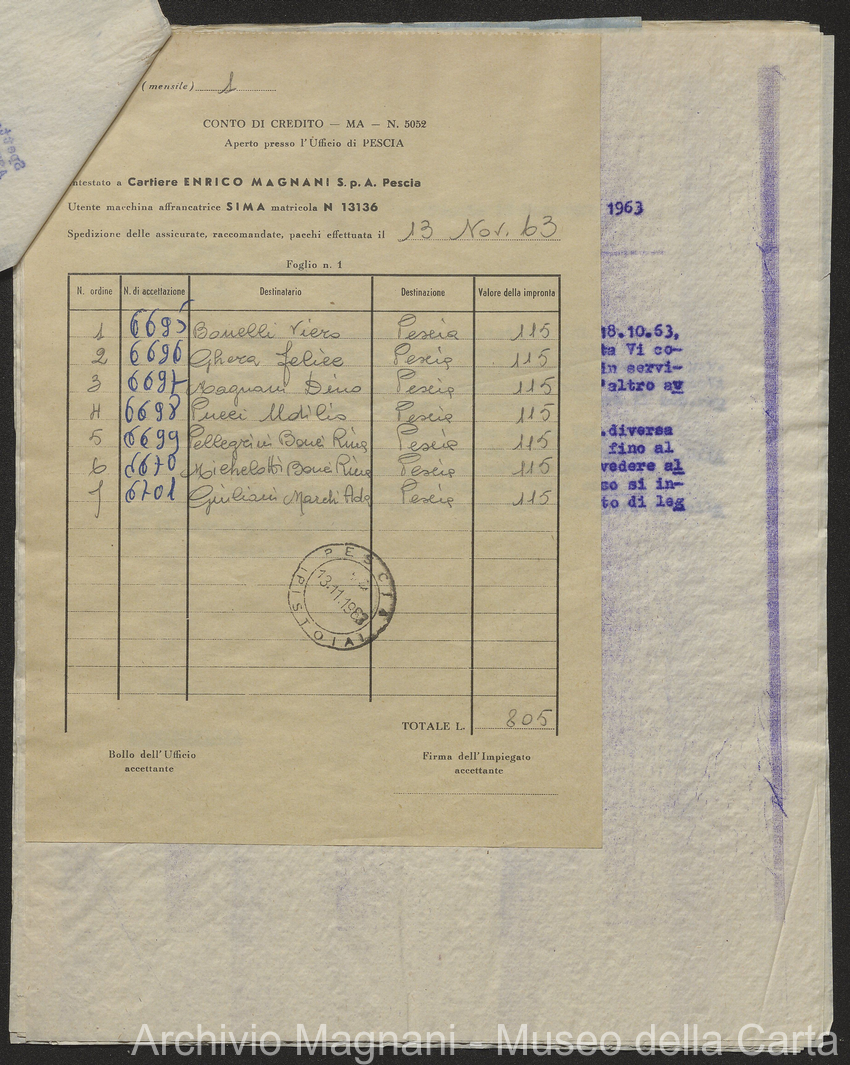 (mensile) 1
CONTO DI CREDITO — MA — N. 5052
Aperto presso l'Ufficio di PESCIA
ntestato a Cartiere ENRICO MAGNANI S.p.A. Pescia
Utente macchina affrancatrice SIMA matricola N 13136
Spedizione delle assicurate, raccomandate, pacchi effettuata il 13 Nov. 63
Foglio n. 1
N. ordine N. di accettazione Destinatario Destinazione Valore della impronta
1 6695 Bonelli Viero Pescia 115
2 6696 Ghera Felice Pescia 115
3 6697 Magnani Dino Pescia 115
4 6698 Pucci Pescia 115
5 6699 Pellegrini Bonci Rina Pescia 115
6 6670 Michelotti Bonci Rina Pescia 115
7 6701 Giuliani Marchi Ada Pescia 115
PESCIA
13.11.1963
(PISTOIA)
TOTALE L. 805
Bollo dell'Ufficio
accettante
Firma dell'Impiegato
accettante
1963
18.10.63,
ta Vi co-
in servi-
'altro av
.diversa
fino al
vedere al
so si in-
to di leg
Archivio Magnani - Museo della Carta